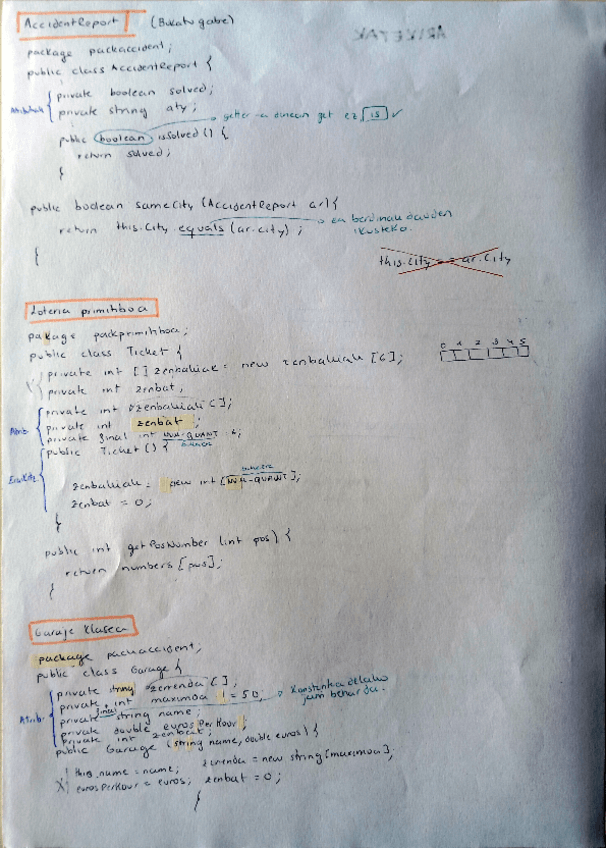 AccidentReport (Bukatu gabe)
ARIKETAK
package packaccident;
public class AccidentReport {
private boolean solved;
Atributuak
private string aty;
getter-a dunean get ez is ✓
public boolean isSolved () {
return solved;
}
public boolean sameCity (AccidentReport ar){
return this.City equals (ar.city) ;
ea berdinak dauden
ikusteko.
}
this.City == ar.City
Loteria primitiboa
pakage packprimitiboa;
public class Ticket {
0 1 2 3 4 5
private int [] zenbakiak = new zenbakiak [6];
private int zenbat;
private int zenbakiak [];
Atrib.
private int zenbat ;
private final int NUM-QUANT = 6;
public Ticket () {
zenbakiak = new int [NUM-QUANT];
zenbat = 0;
}
public int getPosNumber (int pos) {
return numbers [pos];
}
Garaje Klasea
package packaccident;
public class Garage {
private string zerrenda [];
private int maximoa = 50;
Konstantea delako
jarri behar da.
Atrib.
private final string name;
private double euros PerHour ;
private int zenbat;
public Garage (string name, double euros) {
this.name = name; zerrenda = new string [maximoa];
eurosPerHour = euros; zenbat = 0;
}